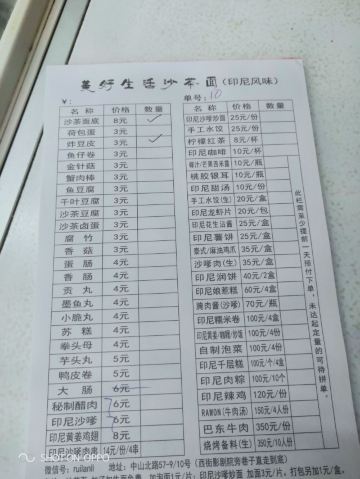 美好生活沙茶面(印尼风味)
¥: 单号: 10
名称 价格 数量 名称 价格 数量
沙茶面底 8元 ✓ 印尼沙嗲炒面 25元/份
荷包蛋 3元 手工水饺 25元/份
炸豆皮 3元 ✓ 柠檬红茶 8元/杯
鱼仔卷 3元 印尼咖啡 10元/杯
金针菇 3元 椰汁/芒果西米露 10元/瓶
蟹肉棒 3元 桃胶银耳 10元/瓶
鱼豆腐 3元 印尼甜汤 10元/份
千叶豆腐 3元 手工水饺(生) 20元/盒
沙茶豆腐 3元 印尼龙虾片 20元/包
沙茶卤蛋 3元 印尼花生沾酱 25元/盒
腐竹 3元 印尼薯饼 25元/盒
香菇 3元 泰式/麻油鸡爪 35元/盒
蛋肠 4元 沙嗲肉(生) 35元/盒
香肠 4元 印尼润饼 40元/2盒
贡丸 4元 印尼娘惹糕 60元/4盒
墨鱼丸 4元 腌肉酱(沙嗲) 70元/瓶
小脆丸 4元 印尼糯米卷 100元/4盒
苏糕 4元
拳头母 4元 自制泡菜 100元/4份
芋头丸 5元 印尼千层糕 100元/个/4盒
鸭皮卷 5元 印尼肉粽 100元/10个
大肠 6元 印尼辣鸡 120元/份
秘制醋肉 6元 RAWON(牛肉汤) 150元/4人份
印尼沙嗲 6元 巴东牛肉 350元/份
印尼黄姜鸡翅 8元 烧烤备料(生) 350元/10人份
印尼沙嗲肉串 14元/份/4串
此栏需至少提前一天预付下单,未达起定量的可待拼单.
微信号: ruilanli 地址: 中山北路57-9/10号(西街影剧院旁巷子直走到底)